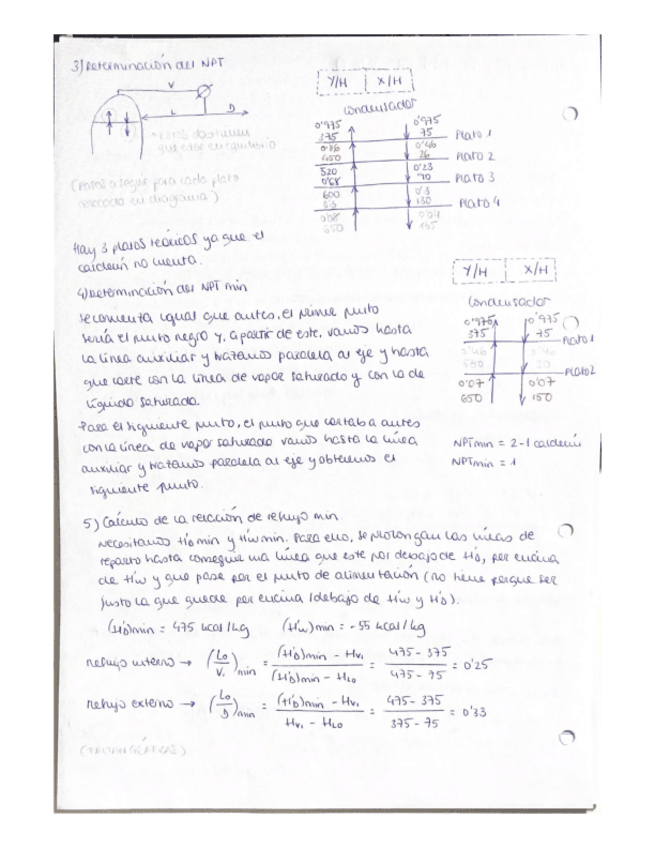 3) Determinación del NPT
V
L
D
(Pasos a seguir para cada plato
en diagrama)
Hay 3 platos teóricos ya que el
calderín no cuenta.
Y/H X/H
Condensador
0'975 0'975
375 75 Plato 1
0'86 0'46
450 26 Plato 2
520 0'23
0'68 70 Plato 3
600 0'3
130 Plato 4
0'08 0'04
650
4) Determinación del NPT min
Se comienta igual que antes, el primer punto
sería el punto negro y, a partir de este, vamos hasta
la línea auxiliar y trazamos paralela al eje y hasta
que corte con la línea de vapor saturado y con la de
líquido saturado.
Para el siguiente punto, el punto que cortaba antes
con la línea de vapor saturado vamos hasta la línea
auxiliar y trazamos paralela al eje y obtenemos el
siguiente punto.
Y/H X/H
Condensador
0'975 0'975
375 75 Plato 1
Plato 2
0'07 0'07
650 150
NPTmin = 2-1 calderín
NPTmin = 1
5) Cálculo de la relación de reflujo min.
Necesitamos H'D min y H'w min. Para ello, se prolongan las líneas de
reparto hasta conseguir una línea que este por debajo de H'D, por encima
de H'w y que pase por el punto de alimentación (no tiene porque ser
justo la que quede por encima/debajo de H'w y H'D).
(H'D)min = 475 kcal/kg (H'w)min = -55 kcal/kg
reflujo interno → (L0/V1)min = (H'D)min - Hv1 / (H'D)min - HL0 = 475 - 375 / 475 - 75 = 0'25
reflujo externo → (L0/D)min = (H'D)min - Hv1 / Hv1 - HL0 = 475 - 375 / 375 - 75 = 0'33